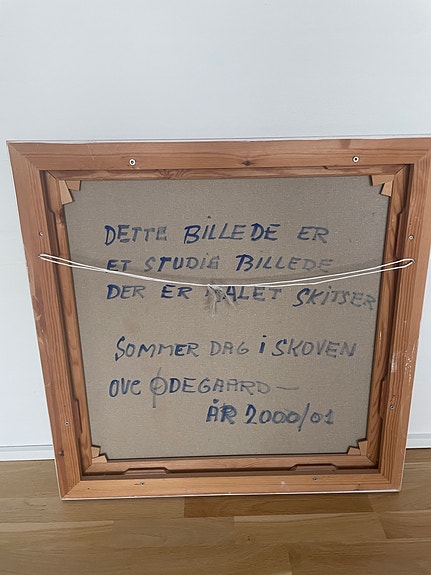 DETTE BILLEDE ER
ET STUDIE BILLEDE
DER ER MALET SKITSER
SOMMER DAG i SKOVEN
OVE ØDEGAARD—
ÅR 2000/01